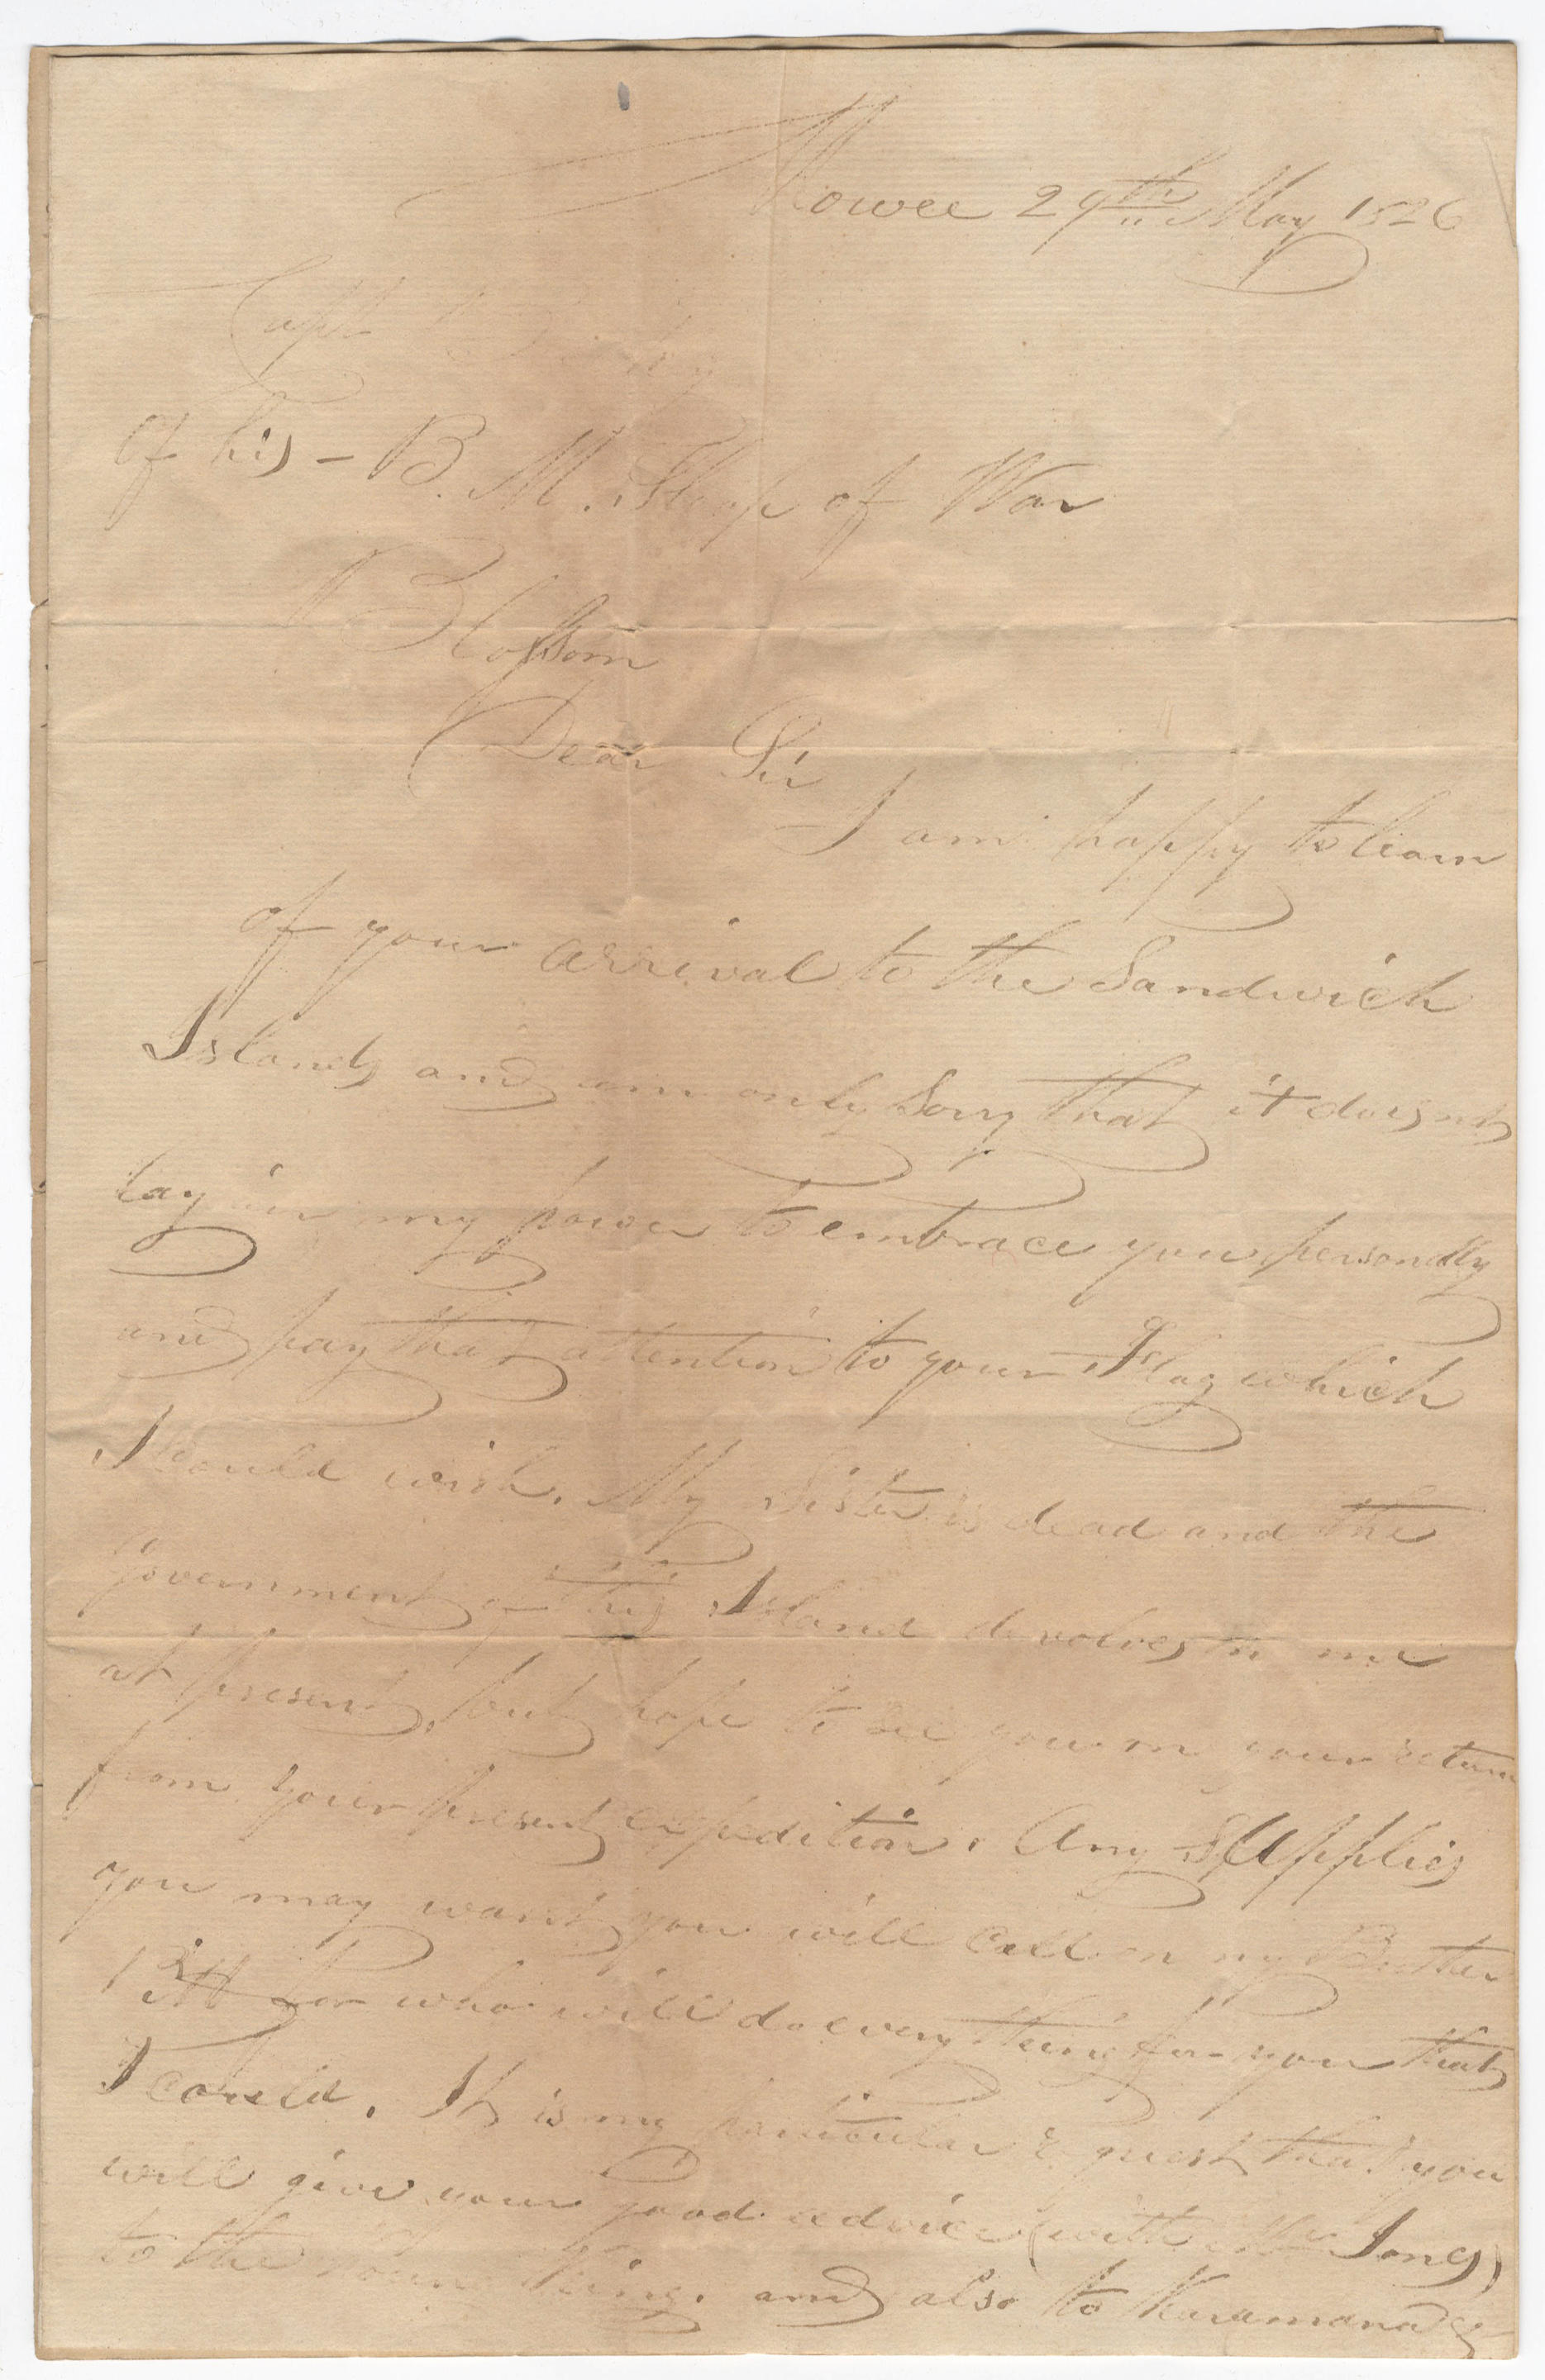 Mowee 29th May 1826
Capt
of his - B. M. Sloop of War
Blossom
Dear Sir
I am happy to learn
of your arrival to the Sandwich
Islands and am only Sory that it does not
lay in my power to embrace you personally
and pay that attention to your Flag which
I could wish. My Sister is dead and the
Government of this Island devolves on me
at present, but hope to see you on your return
from your present expedition. Any SUpplies
you may want you will call on my Brother
who will do every thing for you that
I could. It is my particular request that you
will give your good advice (with Mr Jones)
to the young King. and also to Karamana &